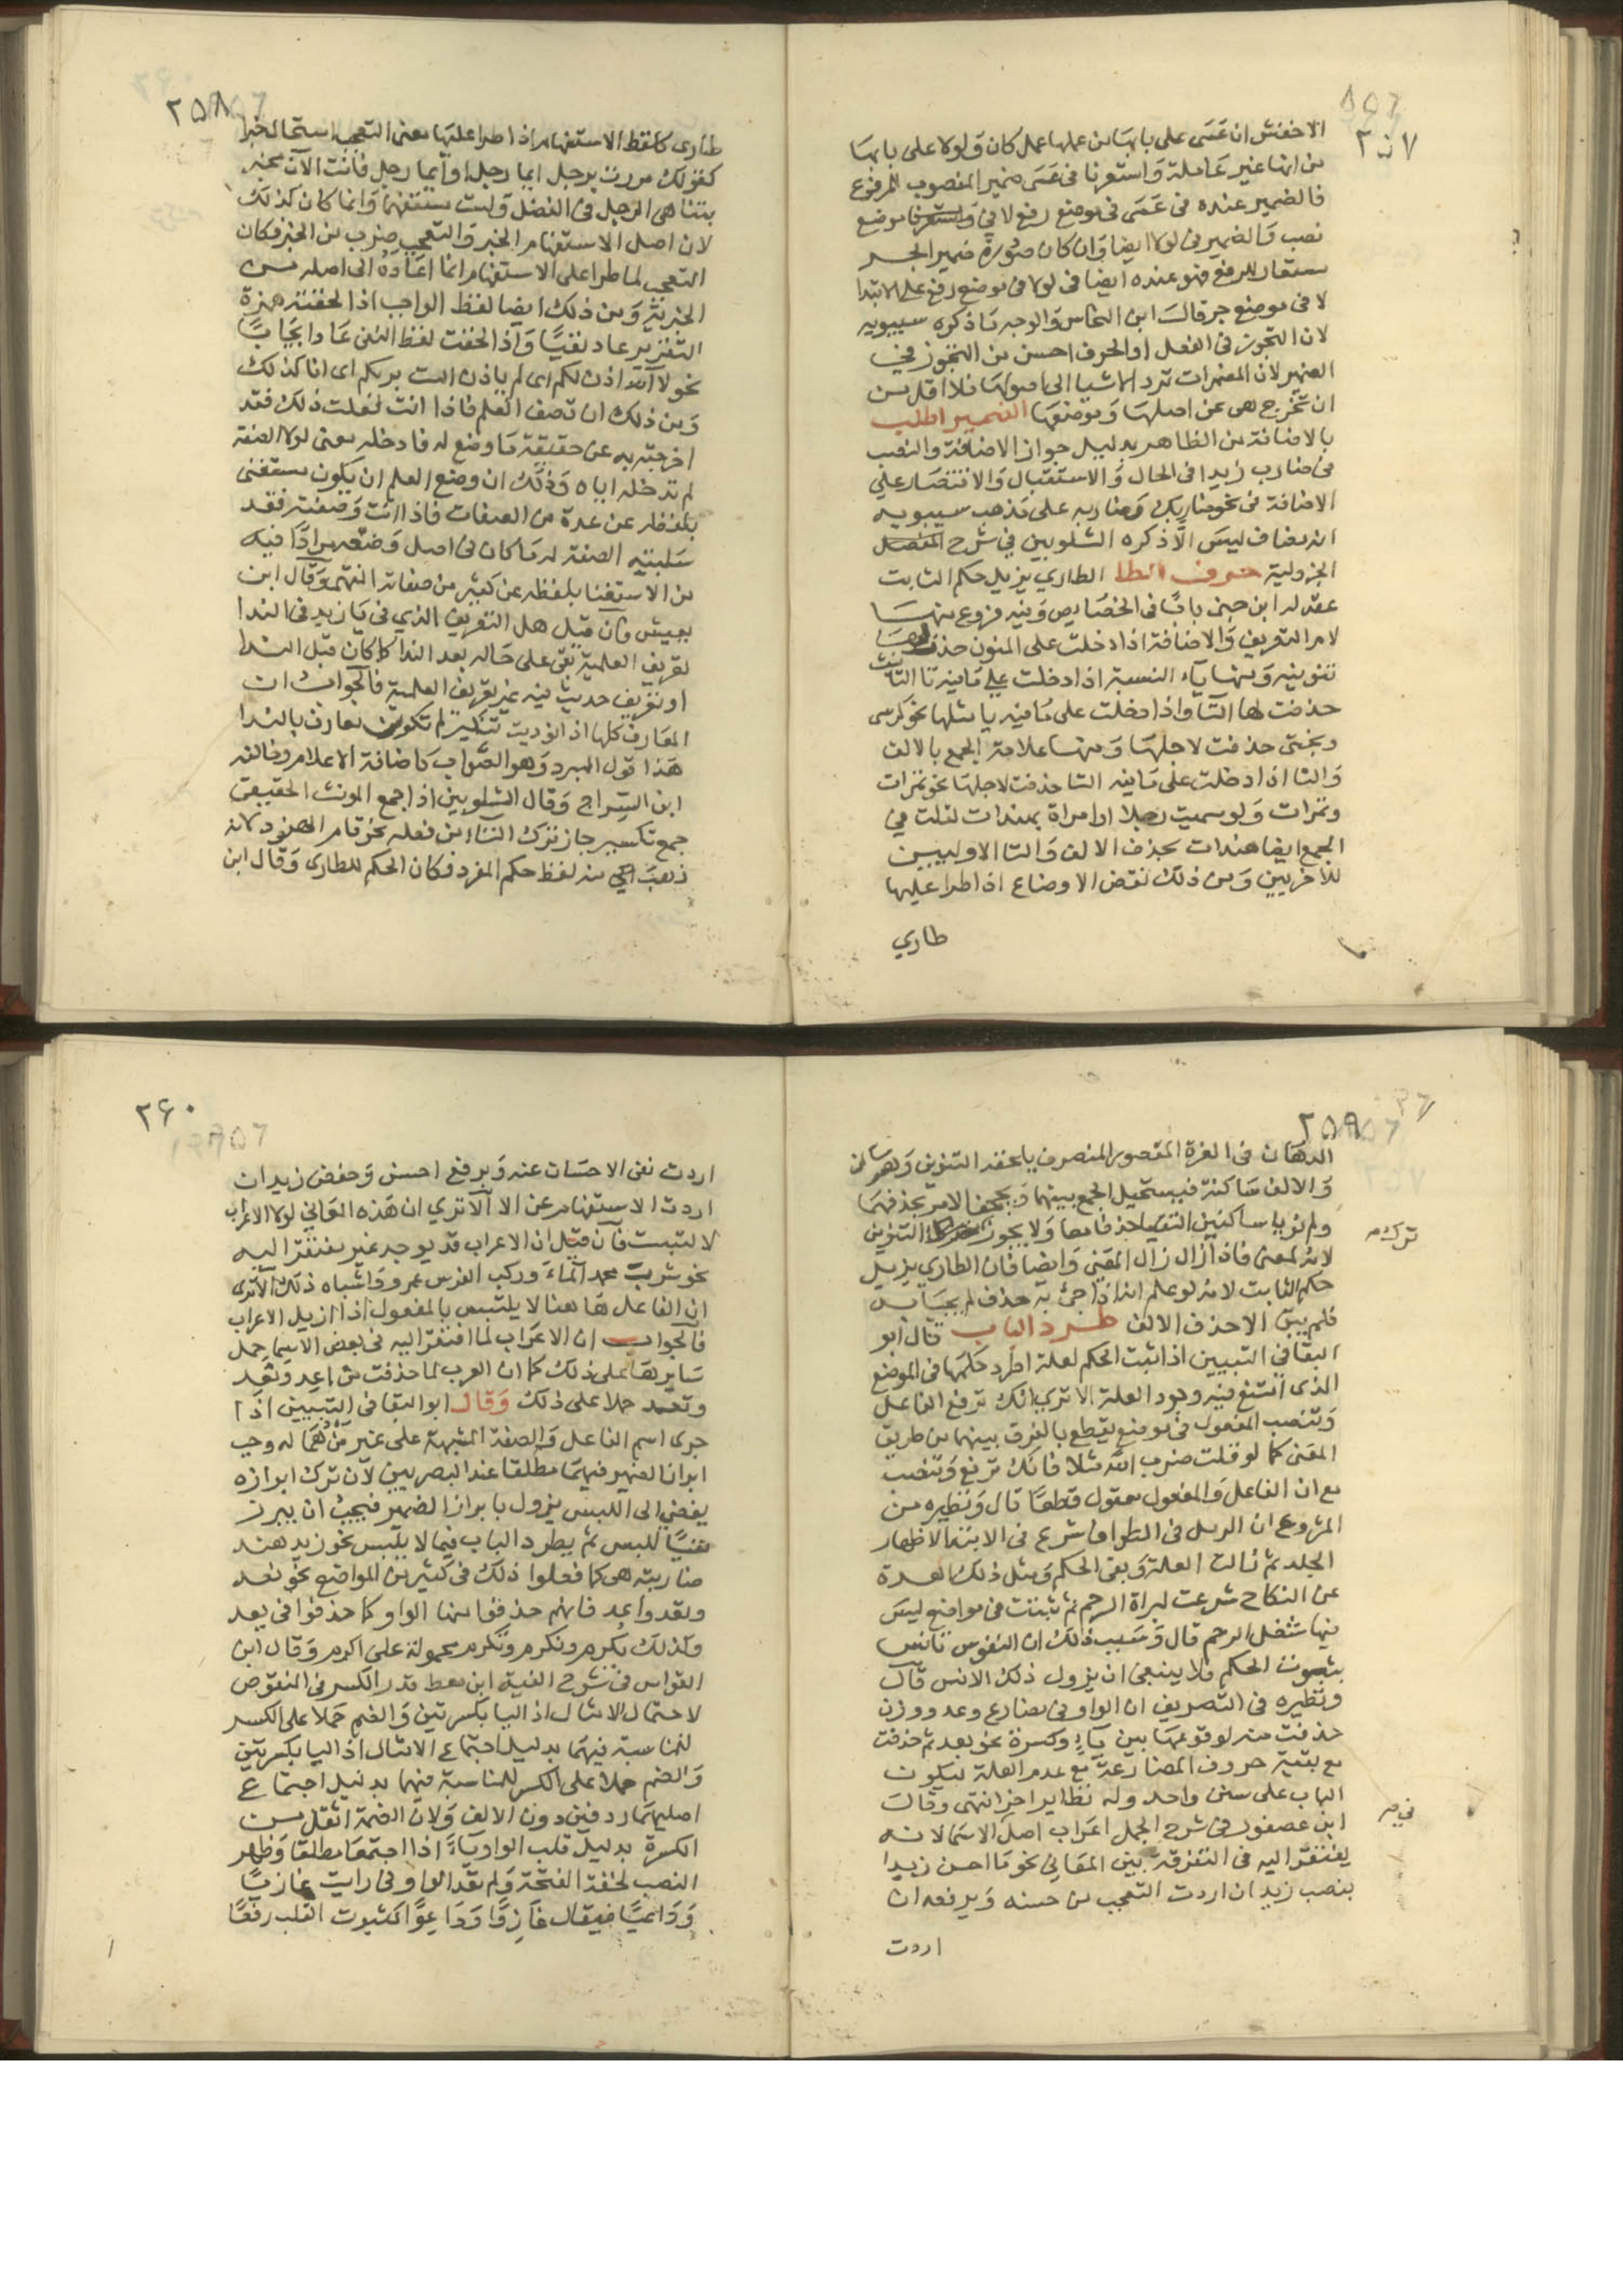 ٢٥٧
الاخفش ان عَسَى على بابهَا من عملها عمل كان وَلولا على بابهَا
من انها غير عَاملة وَاستعرنا فى عَسَى ضمير المنصوب للمرفوع
فالضمير عنده فى عَسَى فى موضع رفع لا فى موضع
نصب وَالضمير فى لولا ايضا وَان كان صُورة ضمير الجر
مستعار للرفع فهو عنده ايضا فى لولا فى موضع رفع على الابتدا
لا فى موضع جر قالَ ابن النحاس وَالوجه مَا ذكره سيبويه
لان التجوز فى الفعل او الحرف احسن من التجوز في
الضمير لان المضمرات ترد الاشيا الى اصولهَا فلا اقل من
ان تخرج هى عن اصلهَا وَموضعهَا الضمير اطلب
بالاضافة من الظاهر بدليل جواز الاضافة والنصب
فى ضارب زيدا فى الحال وَالاستقبال وَالاقتصَار على
الاضافة فى نحو ضاربك وَضاربه على مَذهب سيبويه
انه مضاف ليسَ الّا ذكره الشلوبين في شرح
الجزولية حرف الطا الطاري يزيل حكم الثابت
عقد له ابن جنى بابًا فى الخصَايص وَفيه فروع منهَا
لام التعريف وَالاضافة اذا دخلت على المنون حذف لهَا
تنوينه وَمنها يآء النسبة اذا دخلت على مَا فيه تا التانيث
حذفت لها التآ وَاذا دخلت على مَا فيه يا مثلها نحو كرسى
وبختى حذفت لاجلهَا وَمنها علامة الجمع بالالف
وَالتا اذا دخلت على مَا فيه التا حذفت لاجلهَا نحو تمرات
وتمرات وَلو سميت رجلا او امراة بهندات لقلت في
الجمع ايضا هندات بحذف الالف وَالتا الاوليين
للاخريين وَمن ذلك نقض الاوضاع اذا طرا عليها
طاري
٢٥٨
طارى كلفظ الاستفهام اذا طرا عليهَا معنى التعجب استحال خبرا
كقولك مررت برجل ايما رجل او ايما رجل فانت الآن مخبر
بتناهى الرجل فى الفضل وَلست مستفهما وَانما كان كذلك
لان اصل الاستفهام الخبر وَالتعجب ضرب من الخبر فكان
التعجب لما طرا على الاستفهام انما اعَادَهُ الى اصله من
الخبرية وَمن ذلك ايضا لفظ الواجب اذا لحقته همزة
التقرير عاد نفيًا وَاذا لحقت لفظ النفى عَاد ايجَابًا
نحو آلله اذن لكم اى لم ياذن الست بربكم اى انا كذلك
وَمن ذلك ان تصف العلم فاذا انت فعلت ذلك فقد
اخرجته به عن حقيقة مَا وضع له فادخله معنى لولا الصفة
لم تدخله اياه وَذلك ان وضع العلم ان يكون مستغنى
بلفظه عن عدة من الصفات فاذا انت وَصفته فقد
سَلبته الصفة له مَا كان فى اصل وَضعه مرادًا فيه
من الاستغنا بلفظه عن كثير من صفاته انتهى وَقال ابن
يعيش فان قيل هل التعريف الذي فى يَا زيد فى الندا
تعريف العلمية بقى على حَاله بعد الندا كما كان قبل الندا
او تعريف حدث فيه غير تعريف العلمية فالجواب ان
المعارف كلها اذا نوديت تنكر ثم تكون معارف بالندا
هَذا قول المبرد وَهو الصّواب كاضافة الاعلام وخالفه
ابن السّراج وَقال الشلوبين اذا جمع المونث الحقيقى
جمع تكسير جاز ترك التآء من فعله نحو قام الهنود لانه
ذهبَ منه لفظ حكم المفرد فكان الحكم للطارى وَقال ابن
٢٥٩
الدهان فى الغرة المقصور المنصرف يلحقه التنوين وَهو ساكن
وَالالف سَاكنة فيستحيل الجمع بينهما وَيجحف الامر بحذفهمَا
ولم نر ساكنين التقيا حذفا معا وَلا يجوز التنوين
ترك صح
لانه لمعنى فاذا زال زال المَعنى وَايضا فان الطاري يزيل
حكم الثابت لانه لو علم انه اذا جئ به حذف لم يجئ به
فلم يبق الا حذف الالف طرد الباب قال ابو
البقا فى التبيين اذا ثبت الحكم لعلة اطرد حكمهَا فى الموضع
الذى امتنع فيه وجود العلة الا ترى انك ترفع الفاعل
وَتنصب المفعول فى موضع يقطع بالفرق بينهما من طريق
المَعنى كما لو قلت ضرب الله مثلا فانك ترفع وَتنصب
مع ان الفاعل وَالمفعول معقول قطعًا قال وَنظيره من
المشروع ان الرمل فى الطواف شرع فى الابتدا لاظهار
الجلد ثم زالت العلة وَبقى الحكم وَمثل ذلك العدة
عن النكاح شرعت لبراة الرحم ثم ثبتت فى مواضع ليسَ
فيها شغل الرحم قال وَسَبب ذلك ان النفوس تانس
بثبوت الحكم فلا ينبغى ان يزول ذلك الانس قالَ
ونظيره فى التصريف ان الواو فى مضارع وعد ووزن
حذفت منه لوقوعهَا بين يآء وكسرة نحو يعد ثم حذفت
مع بقية حروف المضارعة مع عدم العلة ليكون
الباب على سنن واحد وله نظاير اخر انتهى وقالَ
فى صح
ابن عصفور فى شرح الجمل اعرَاب اصل الاسمَا لانه
يفتقر اليه فى التفرقة بين المعَانى نحو مَا احسن زيدا
بنصب زيد ان اردت التعجب من حسنه وَبرفعه ان
اردت
٢٦٠
اردت نفى الاحسَان عنه وَبرفع احسن وَخفض زيد ان
اردت الاستفهام عن الا الا ترى ان هَذه المعَانى لولا الاعراب
لالتبست فان قيل ان الاعراب قد يوجد غير مفتقر اليه
نحو شرب محمد المآء وَركب الفرس عمرو وَاشباه ذلك الا ترى
ان الفاعل هَاهنا لا يلتبس بالمفعول اذا ازيل الاعراب
فالجواب ان الاعرَاب لما افتقر اليه فى بعض الاسمَا حمل
سَايرهَا على ذلك كما ان العرب لما حذفت من اعِد وَنَعد
وتعد حملا على ذلك وَقال ابو البقا فى التبيين اذا
جرى اسم الفاعل وَالصفة المشبهة على غير مَن هُمَا له وجب
ابراز الضمير فيهمَا مطلقا عند البصريين لان ترك ابرازه
يفضي الى اللبس يزول بابراز الضمير فيجب ان يبرز
نفيًا للبس ثم يطرد الباب فيما لا يلبس نحو زيد هند
ضاربته هى كما فعلوا ذلك فى كثير من المواضع نحو نعد
وتعد واعد فانهم حذفوا منها الواو كما حذفوا فى يعد
وكذلك يُكرم ونكرم وَتكرم محمولة على اكرم وَقال ابن
القواس فى شرح الفية ابن معط قدر الكسر فى المنقوص
لاحتمَال الامثال اذ اليا بكسرتين وَالضم حَملا على الكسر
للمناسبة فيهمَا بدليل اجتماع الامثال اذ اليا بكسرتين
وَالضم حملا على الكسر للمناسبة فيهما بدليل اجتماع
اصليهمَا ردفين دون الالف وَلان الضمة اثقل من
الكسرة بدليل قلب الواو يآءً اذا اجتمعَا مطلقا وَظهر
النصب لخفة الفتحة وَلم تقدر الواو فى رايت غازيًا
وَدَاعيًا فيقال غَازِوًا وَدَاعِوًا كثبوت القلب رفعًا